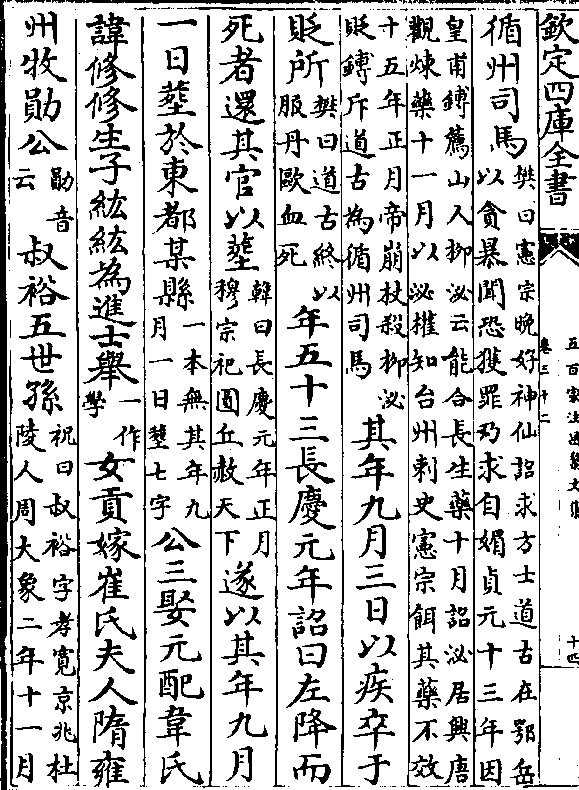 欽定四庫全書
五百家注昌黎文集
卷三十二
十四
循州司馬
樊曰憲宗晚好神仙詔求方士道古在鄂岳
以貪暴聞恐獲罪乃求自媚貞元十三年因
皇甫鎛薦山人栁泌云能合長生藥十月詔泌居興唐
觀煉藥十一月以泌權知台州刺史憲宗餌其藥不效
十五年正月帝崩杖殺栁泌
貶鎛斥道古為循州司馬
其年九月三日以疾卒于
貶所
樊曰道古終以
服丹歐血死
年五十三長慶元年詔曰左降而
死者還其官以塟
韓曰長慶元年正月
穆宗祀圜丘赦天下
遂以其年九月
一日塟於東都某縣
一本無其年九
月一日塟七字
公三娶元配韋氏
諱修修生子紘紘為進士舉
一作
學
女貢嫁崔氏夫人隋雍
州牧勛公
勛音
云
叔裕五世孫
祝曰叔裕字孝寛京兆杜
陵人周大象二年十一月